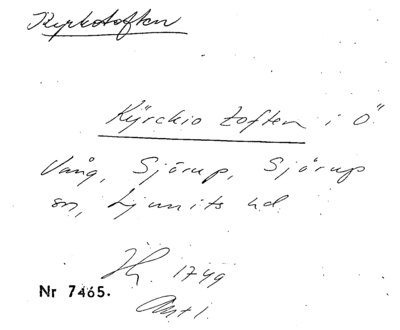 Kyrkotoften
Kÿrckio toften i Ö
Vång, Sjörup, Sjörup
sn, Ljunits hd
1749
Nr 7465.